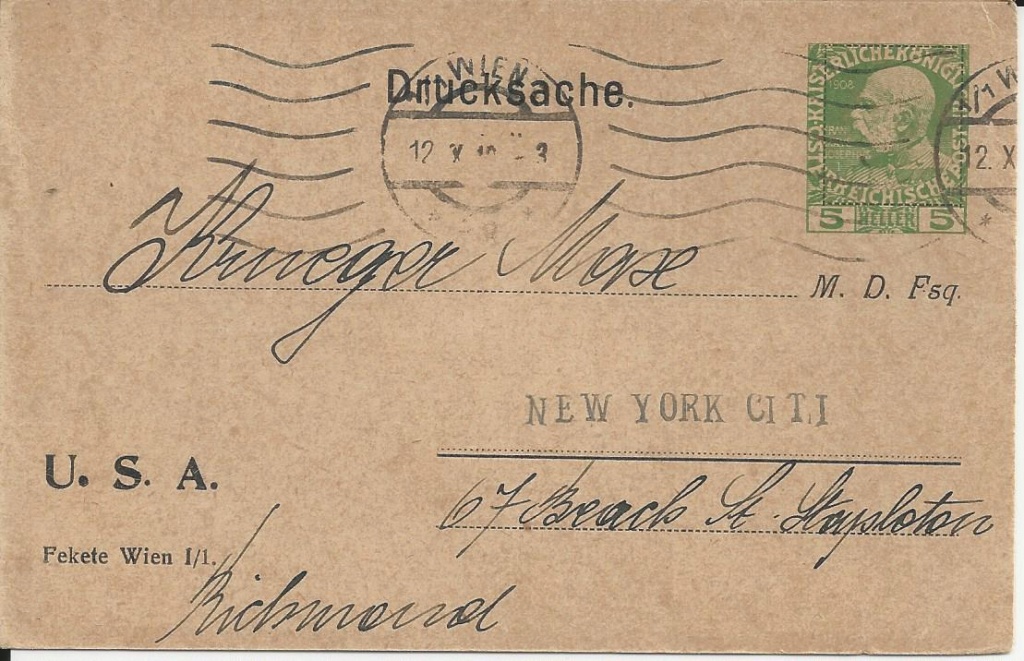 WIEN
Drucksache.
12. X
1/1 W
12. X
KAISERLICHE KÖNIGL
1908
ÖSTERREICHISCHE POST
5 HELLER 5
Krueger Max
M. D. Esq.
NEW YORK CITI
U. S. A.
67 Beach St. Stapleton
Fekete Wien I/1.
Richmond